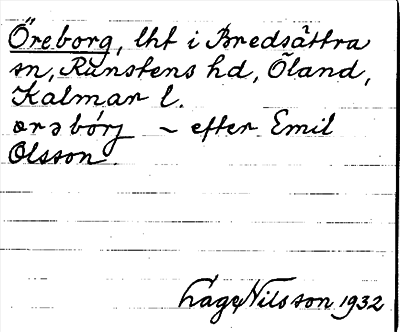 Öreborg, lht i Bredsättra
sn, Runstens hd, Öland,
Kalmar l.
ørəbórj ~ efter Emil
Olsson.
Låge Nilsson 1932